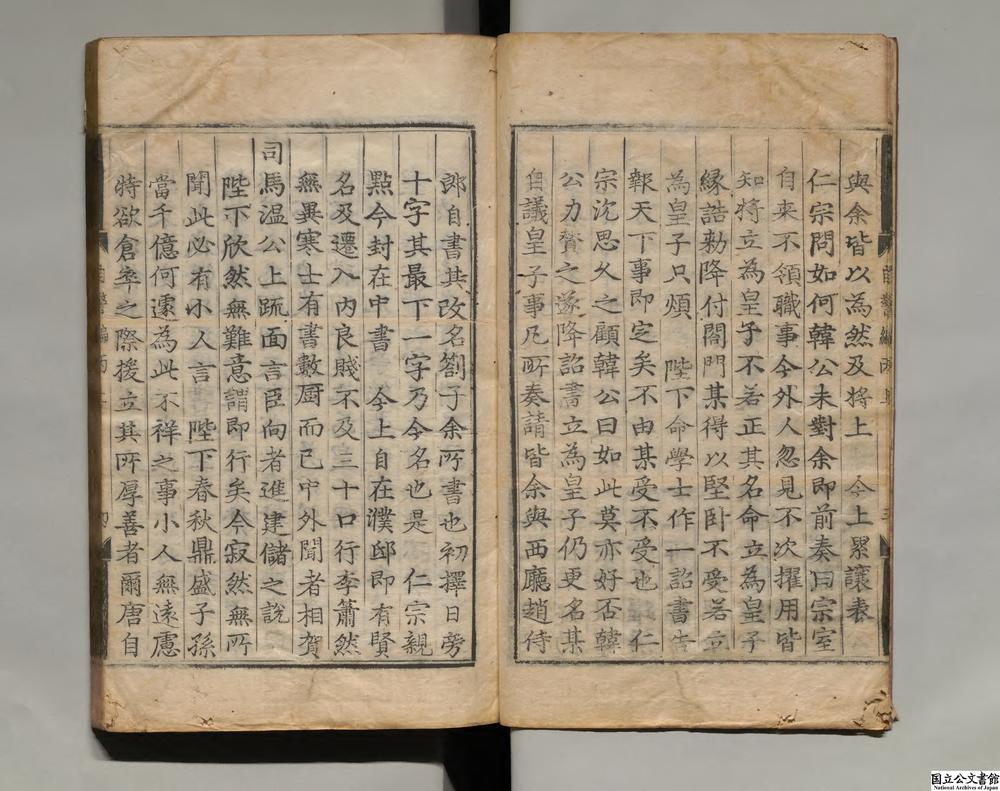 與余皆以為然及將上　今上累讓表
仁宗問如何韓公未對余即前奏曰宗室
自来不領職事今外人忽見不次擢用皆
知將立為皇子不若正其名命立為皇子
縁誥勑降付閤門某得以堅卧不受若立
為皇子只煩　陛下命學士作一詔書告
報天下事即定矣不由某受不受也　仁
宗沈思久之顧韓公曰如此莫亦好否韓
公力賛之遂降詔書立為皇子仍更名某
自議皇子事凡所奏請皆余與西廳趙侍
郎自書其改名劄子余所書也初擇日旁
十字其最下一字乃今名也是　仁宗親
點今封在中書　今上自在濮邸即有賢
名及遷入内良賤不及三十口行李蕭然
無異寒士有書數厨而已中外聞者相賀
司馬温公上疏面言臣向者進建儲之說
陛下欣然無難意謂即行矣今寂然無所
聞此必有小人言　陛下春秋鼎盛子孫
當千億何遽為此不祥之事小人無逺慮
特欲倉卒之際援立其所厚善者爾唐自
国立公文書館
National Archives of Japan